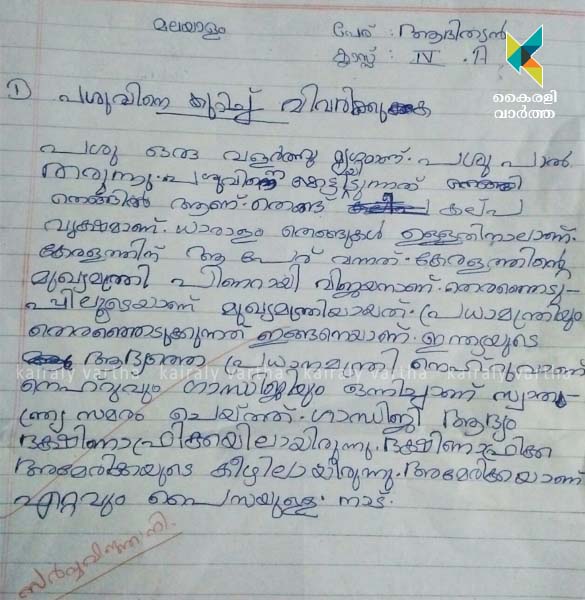 മലയാളം
പേര് : ആദിത്യൻ
ക്ലാസ്സ് : IV . A
കൈരളി
വാർത്ത
① പശുവിനെ കുറിച്ച് വിവരിക്കുക
പശു ഒരു വളർത്തു മൃഗമാണ്. പശു പാൽ
തരുന്നു. പശുവിനെ കെട്ടിയിട്ടുന്നത്
തെങ്ങിൽ ആണ്. തെങ്ങ് കല്പ
വൃക്ഷമാണ്. ധാരാളം തെങ്ങുകൾ ഉള്ളതിനാലാണ്.
കേരളത്തിന് ആ പേര് വന്നത്. കേരളത്തിന്റെ
മുഖ്യമന്ത്രി പിണറായി വിജയനാണ്. തെരഞ്ഞെടു-
പ്പിലൂടെയാണ് മുഖ്യമന്ത്രിയായത്. പ്രധാമന്ത്രിയും
തെരഞ്ഞെടുക്കുന്നത് ഇങ്ങനെയാണ്. ഇന്ത്യയുടെ
ആദ്യത്തെ പ്രധാനമന്ത്രി നെഹ്റുവാണ്
kairaly vartha kairaly vartha kairaly vartha kairaly vartha
നെഹ്റുവും ഗാന്ധിജിയും ഒന്നിച്ചാണ് സ്വാത-
ന്ത്ര്യ സമരം ചെയ്തത്. ഗാന്ധിജി ആദ്യം
ദക്ഷിണാഫ്രിക്കയിലായിരുന്നു. ദക്ഷിണാഫ്രിക്ക
അമേരിക്കയുടെ കീഴിലായിരുന്നു. അമേരിക്കയാണ്
ഏറ്റവും പൈസയുള്ള നാട്.
സർവ്വവിജ്ഞാനി.